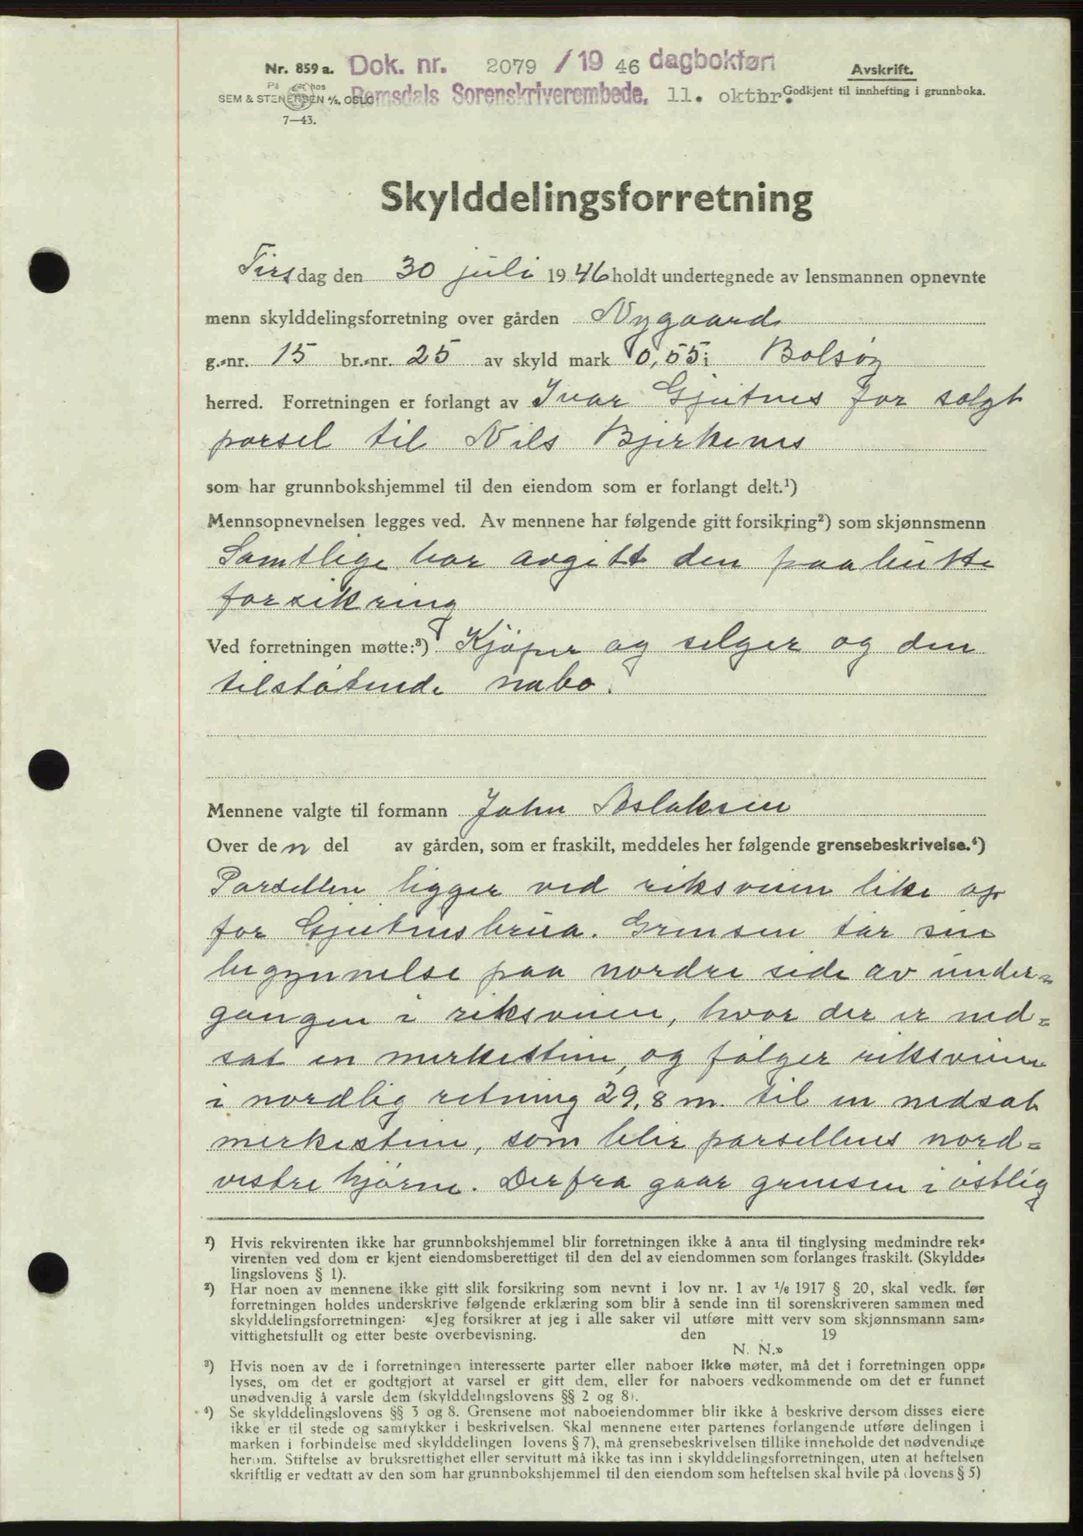 Nr. 859 a. Dok. nr. 2079 / 19 46 dagbokført Avskrift.
På hos
SEM & STENERSEN A/S, OSLO Romsdals Sorenskriverembede, 11. oktbr. Godkjent til innhefting i grunnboka.
7—43.
Skylddelingsforretning
Tirsdag den 30 juli 1946 holdt undertegnede av lensmannen opnevnte
menn skylddelingsforretning over gården Nygaard
g.-nr. 15 br.-nr. 25 av skyld mark 0,55 i Bolsøy
herred. Forretningen er forlangt av Ivar Gjutnes for solgt
parsel til Nils Bjerkenes
som har grunnbokshjemmel til den eiendom som er forlangt delt.¹)
Mennsopnevnelsen legges ved. Av mennene har følgende gitt forsikring²) som skjønnsmenn
Samtlige har avgitt den paabutte
forsikring
Ved forretningen møtte:³) Kjøper og selger og den
tilstøtende nabo.
Mennene valgte til formann John Aslaksen
Over den del av gården, som er fraskilt, meddeles her følgende grensebeskrivelse.⁴)
Parsellen ligger ved riksveien like op
for Gjutnesbrua. Grensen tar sin
begynnelse paa nordre side av under-
gangen i riksveien, hvor der er ned-
sat en merkesten, og følger riksveien
i nordlig retning 29,8 m. til en nedsat
merkesten, som blir parsellens nord-
vestre hjørne. Derfra gaar grensen i østlig
¹) Hvis rekvirenten ikke har grunnbokshjemmel blir forretningen ikke å anta til tinglysing medmindre rek-
virenten ved dom er kjent eiendomsberettiget til den del av eiendommen som forlanges fraskilt. (Skyldde-
lingslovens § 1).
²) Har noen av mennene ikke gitt slik forsikring som nevnt i lov nr. 1 av 1/6 1917 § 20, skal vedk. før
forretningen holdes underskrive følgende erklæring som blir å sende inn til sorenskriveren sammen med
skylddelingsforretningen: «Jeg forsikrer at jeg i alle saker vil utføre mitt verv som skjønnsmann sam-
vittighetsfullt og etter beste overbevisning. den 19
N. N.»
³) Hvis noen av de i forretningen interesserte parter eller naboer ikke møter, må det i forretningen opp-
lyses, om det er godtgjort at varsel er gitt dem, eller for naboers vedkommende om det er funnet
unødvendig å varsle dem (skylddelingslovens §§ 2 og 8).
⁴) Se skylddelingslovens §§ 3 og 8. Grensene mot naboeiendommer blir ikke å beskrive dersom disses eiere
ikke er til stede og samtykker i beskrivelsen. Skal mennene etter partenes forlangende utføre delingen i
marken i forbindelse med skylddelingen lovens § 7), må grensebeskrivelsen tillike inneholde det nødvendige
herom. Stiftelse av bruksrettighet eller servitutt må ikke tas inn i skylddelingsforretningen, uten at heftelsen
skriftlig er vedtatt av den som har grunnbokshjemmel til den eiendom som heftelsen skal hvile på (lovens § 5)